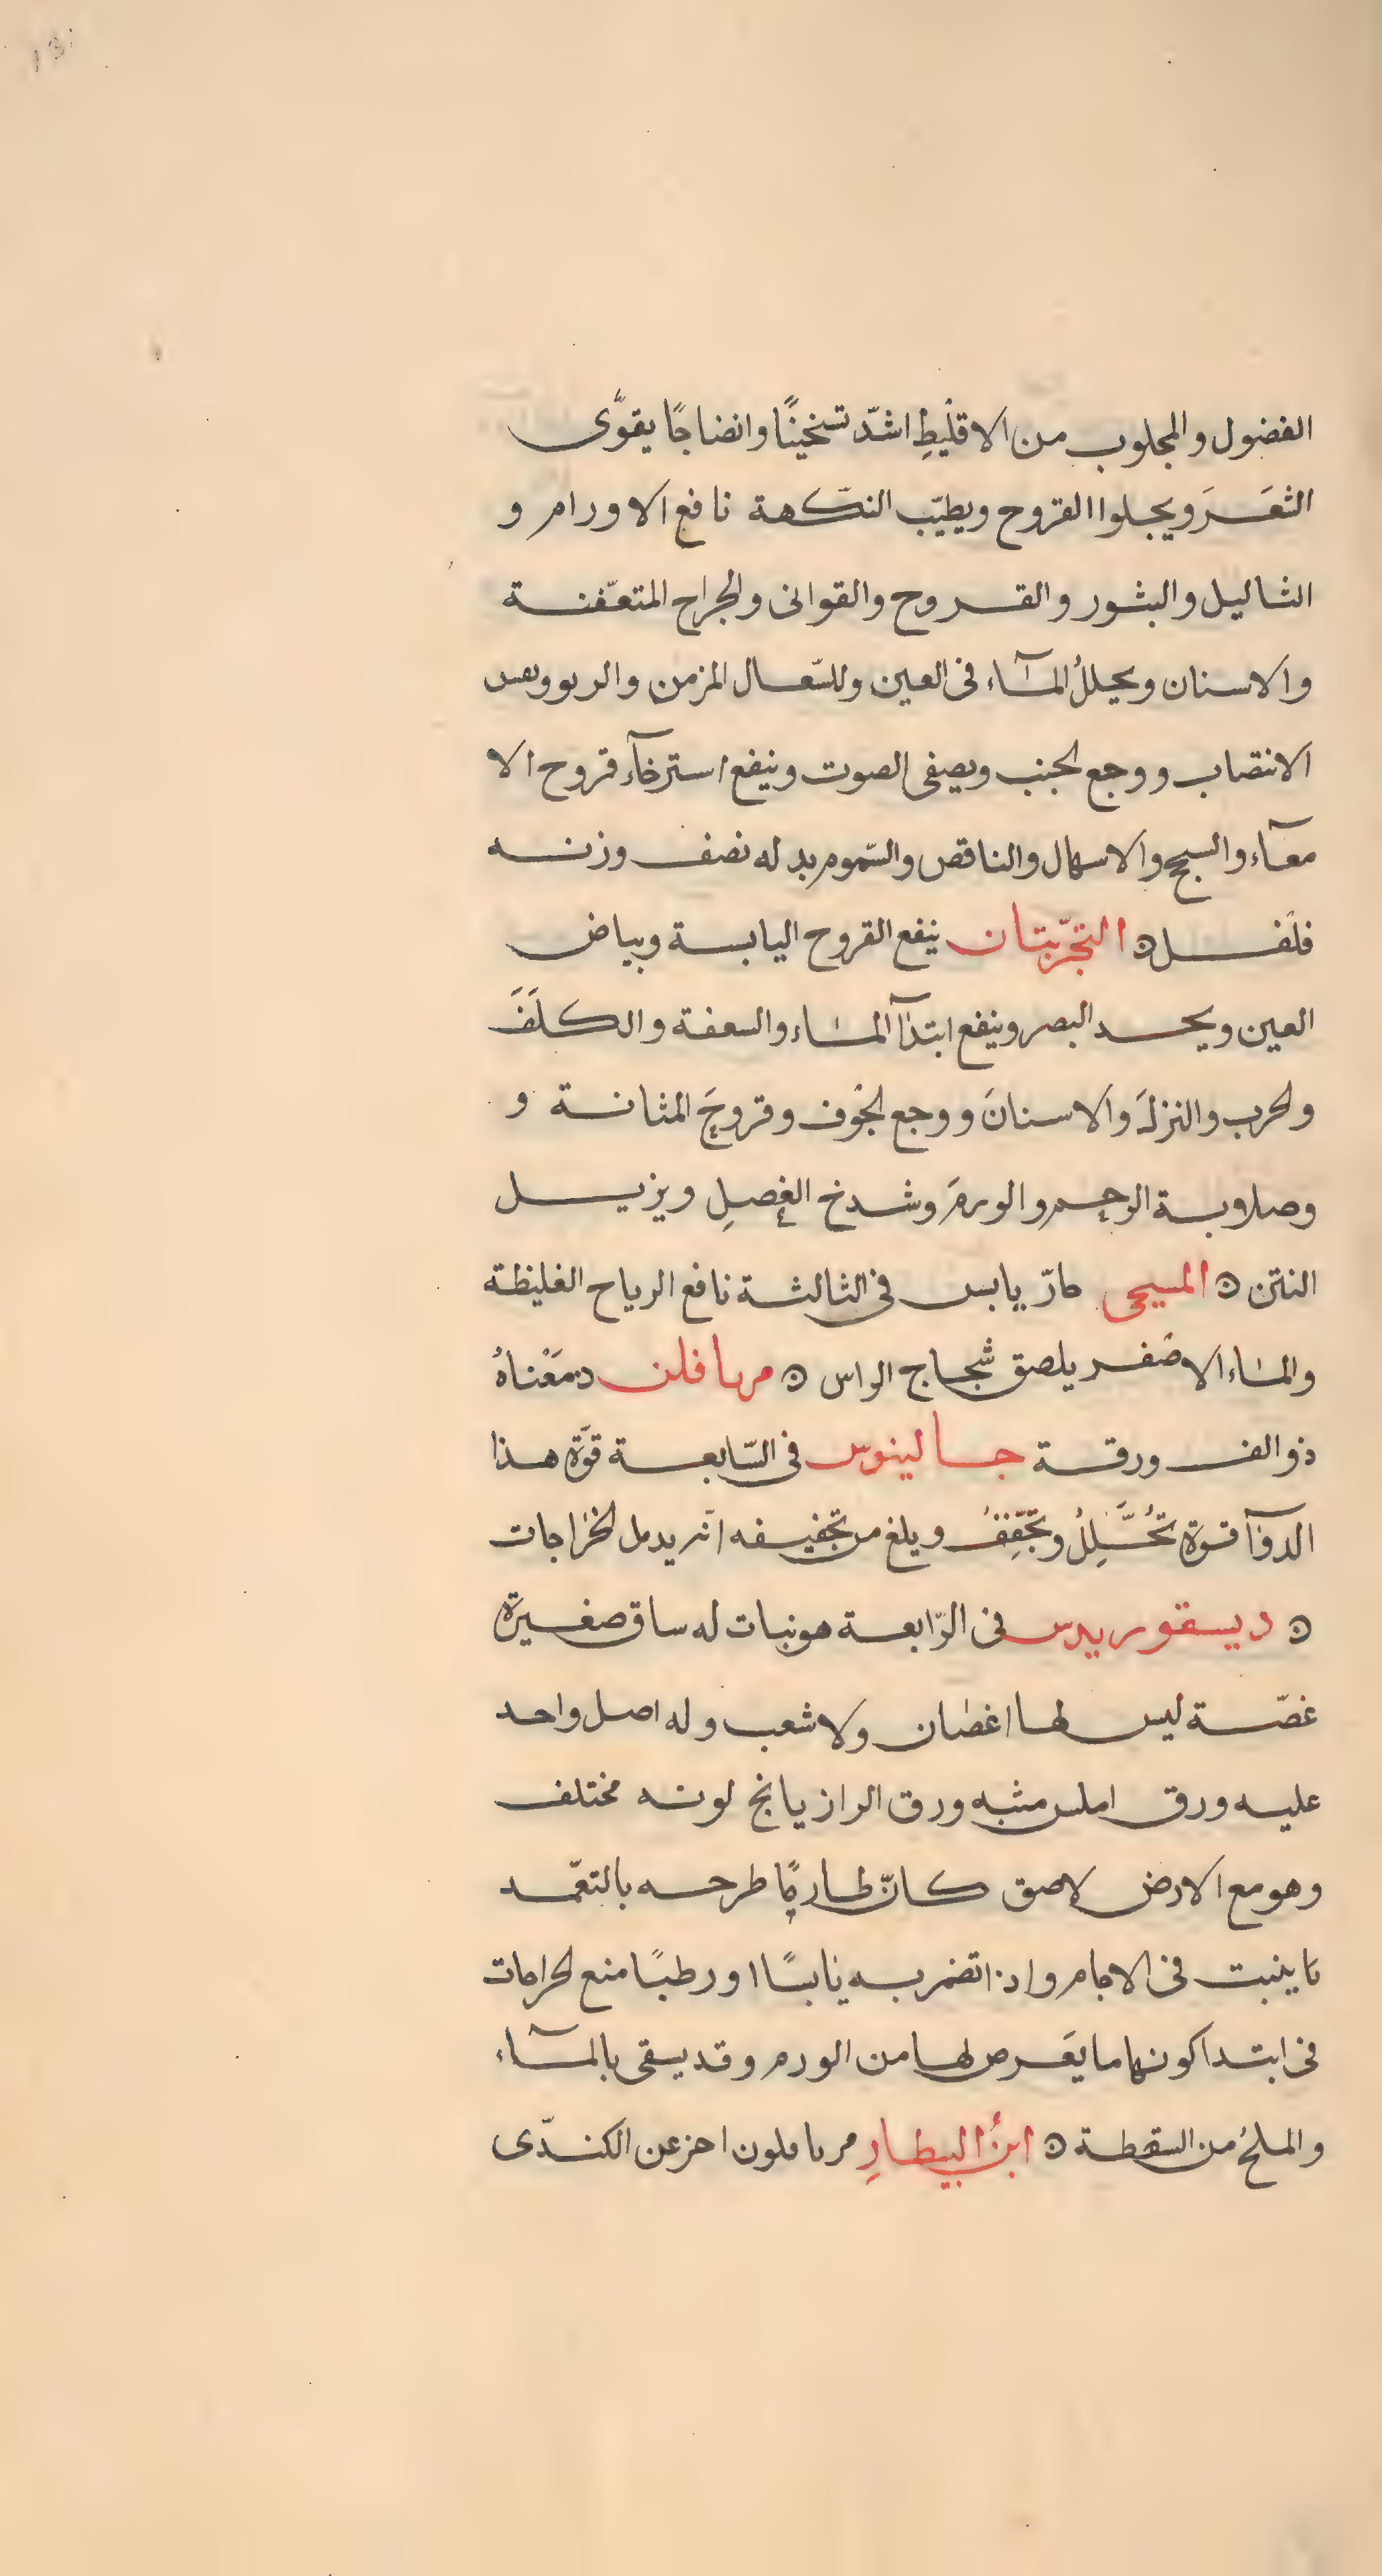 الفضول والمجلوب من الاقليطِ اشدّ تسخينًا وانضاجًا يقوّى
الثعَرَ ويجلوا القروح ويطيّب النكهة نافع الاورام و
الثاليل والبثور والقروح والقوانى والجراح المتعفّنة
والاسنان ويحللُ المآء فى العين وللسّعال المزمن والربو ونفس
الانتصاب ووجع الجنب ويصفى الصوت وينفع استرخآء قروح الا
معآء والسحج والاسهال والناقص والسّموم بدله نصف وزنه
فلفل ه التجرّبتان ينفع القروح اليابسة وبياض
العين ويحد البصر وينفع ابتدآ المآء والسعفة والكلَفَ
والحرب والنزلَ والاسنانَ ووجع الجَوف وقروحَ المثانة و
وصلابة الرحم والورمَ وشدخ العصلِ ويزيل
النتن ه المسيحى حارّ يابس فى الثالثة نافع الرياح الغليظة
والماء الاصفر يلصق شجاج الراس ه مرىافلن دمَعْناهُ
ذو الف ورقة جالينوس فى السّابعة قوّة هذا
الدوآ قوة تُحَلِّلُ وتجَفِّفُ ويلغ من تجفيفه انّه يدمل الخراجات
ه ديسقوريدس فى الرّابعة هو نبات له ساق صغيرة
غصّة ليس لها اغصان ولا شعب وله اصل واحد
عليه ورق املس مشبه ورق الرازيانج لونه مختلف
وهو مع الارض لاصق كانّ طارمًا طرحه بالتعمّد
ما ينبت فى الاجام واذا تضمر به يابسًا او رطبًا منع الجراحات
فى ابتدا كونها ما يعَرص لها من الورم وقد يسقى بالمآء
والملحُ من السقطة ه ابنُ البيطارِ مرىاملون احز عن الكندّى